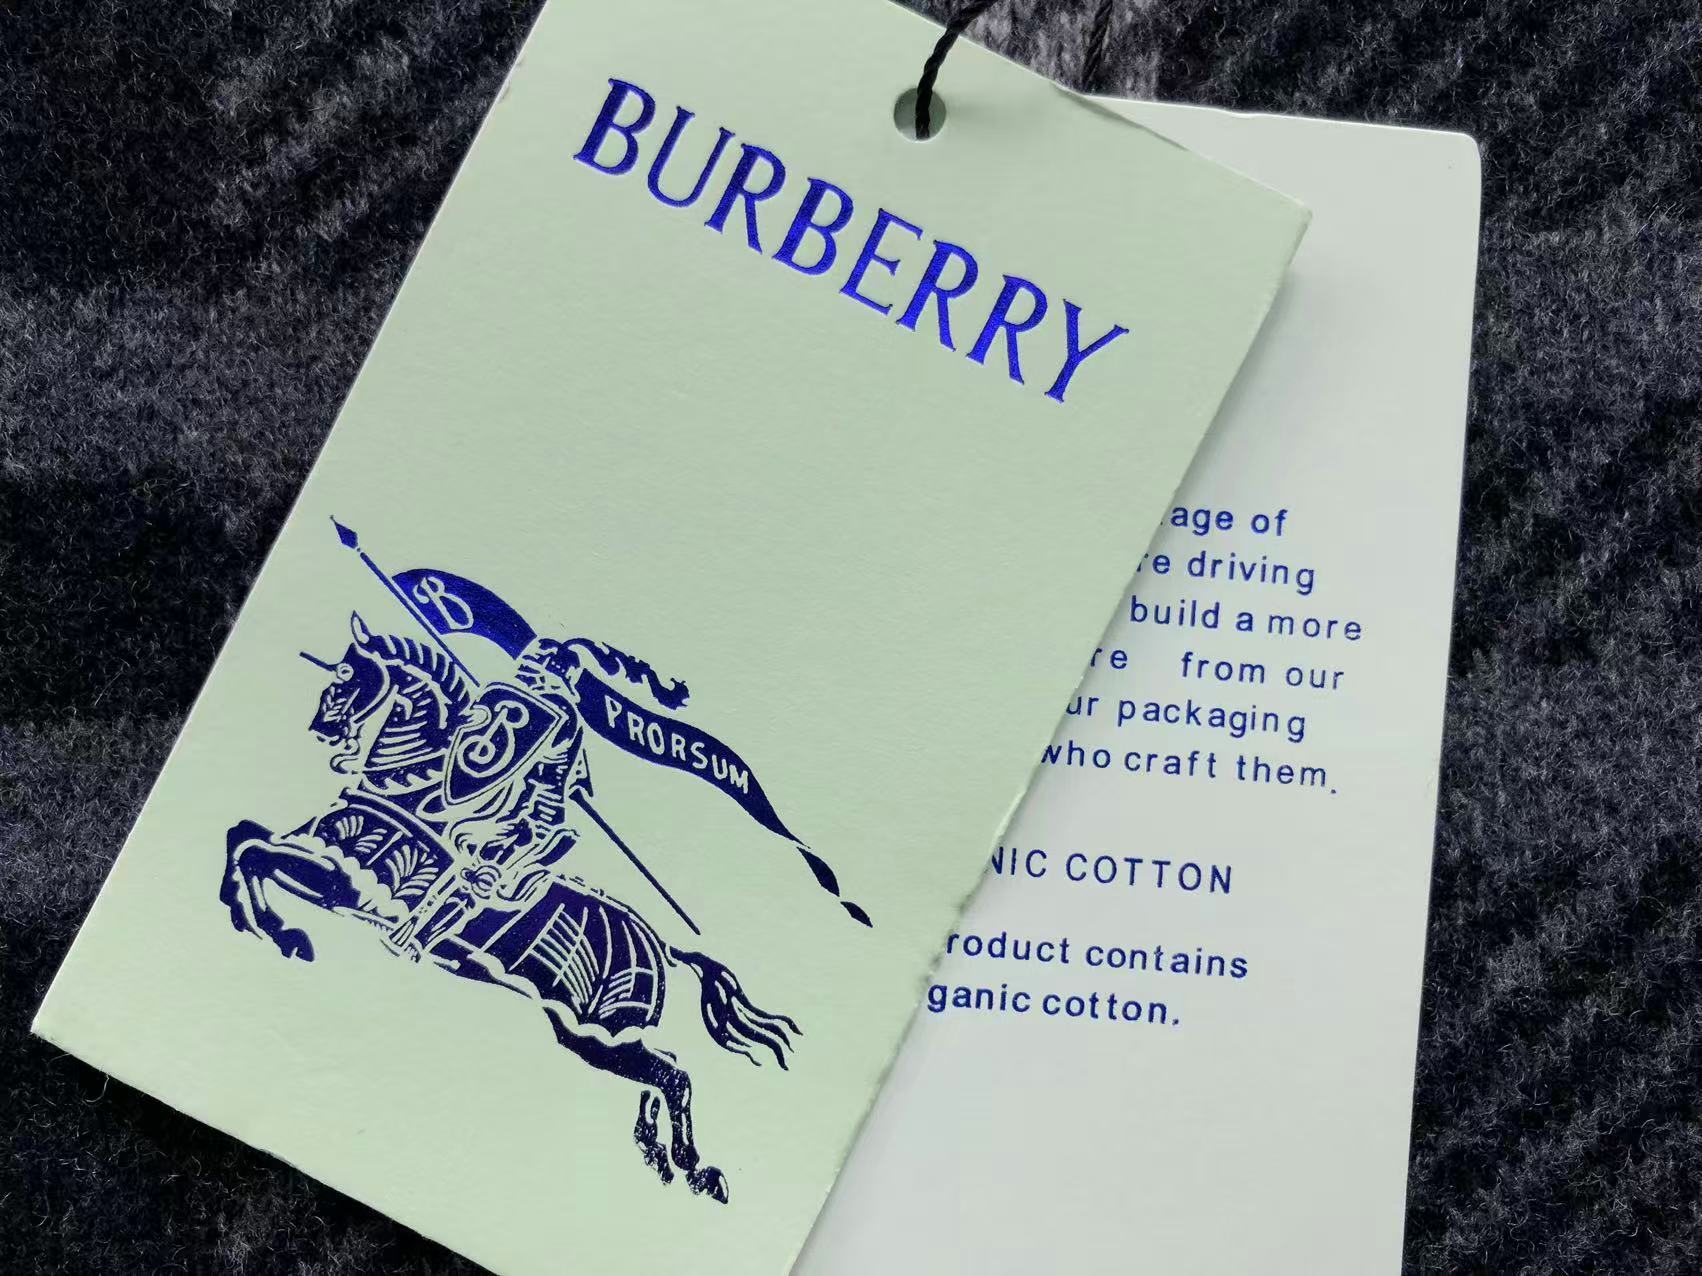 BURBERRY
B
B
PRORSUM
age of
re driving
build a more
re from our
ur packaging
who craft them.
NIC COTTON
roduct contains
ganic cotton.